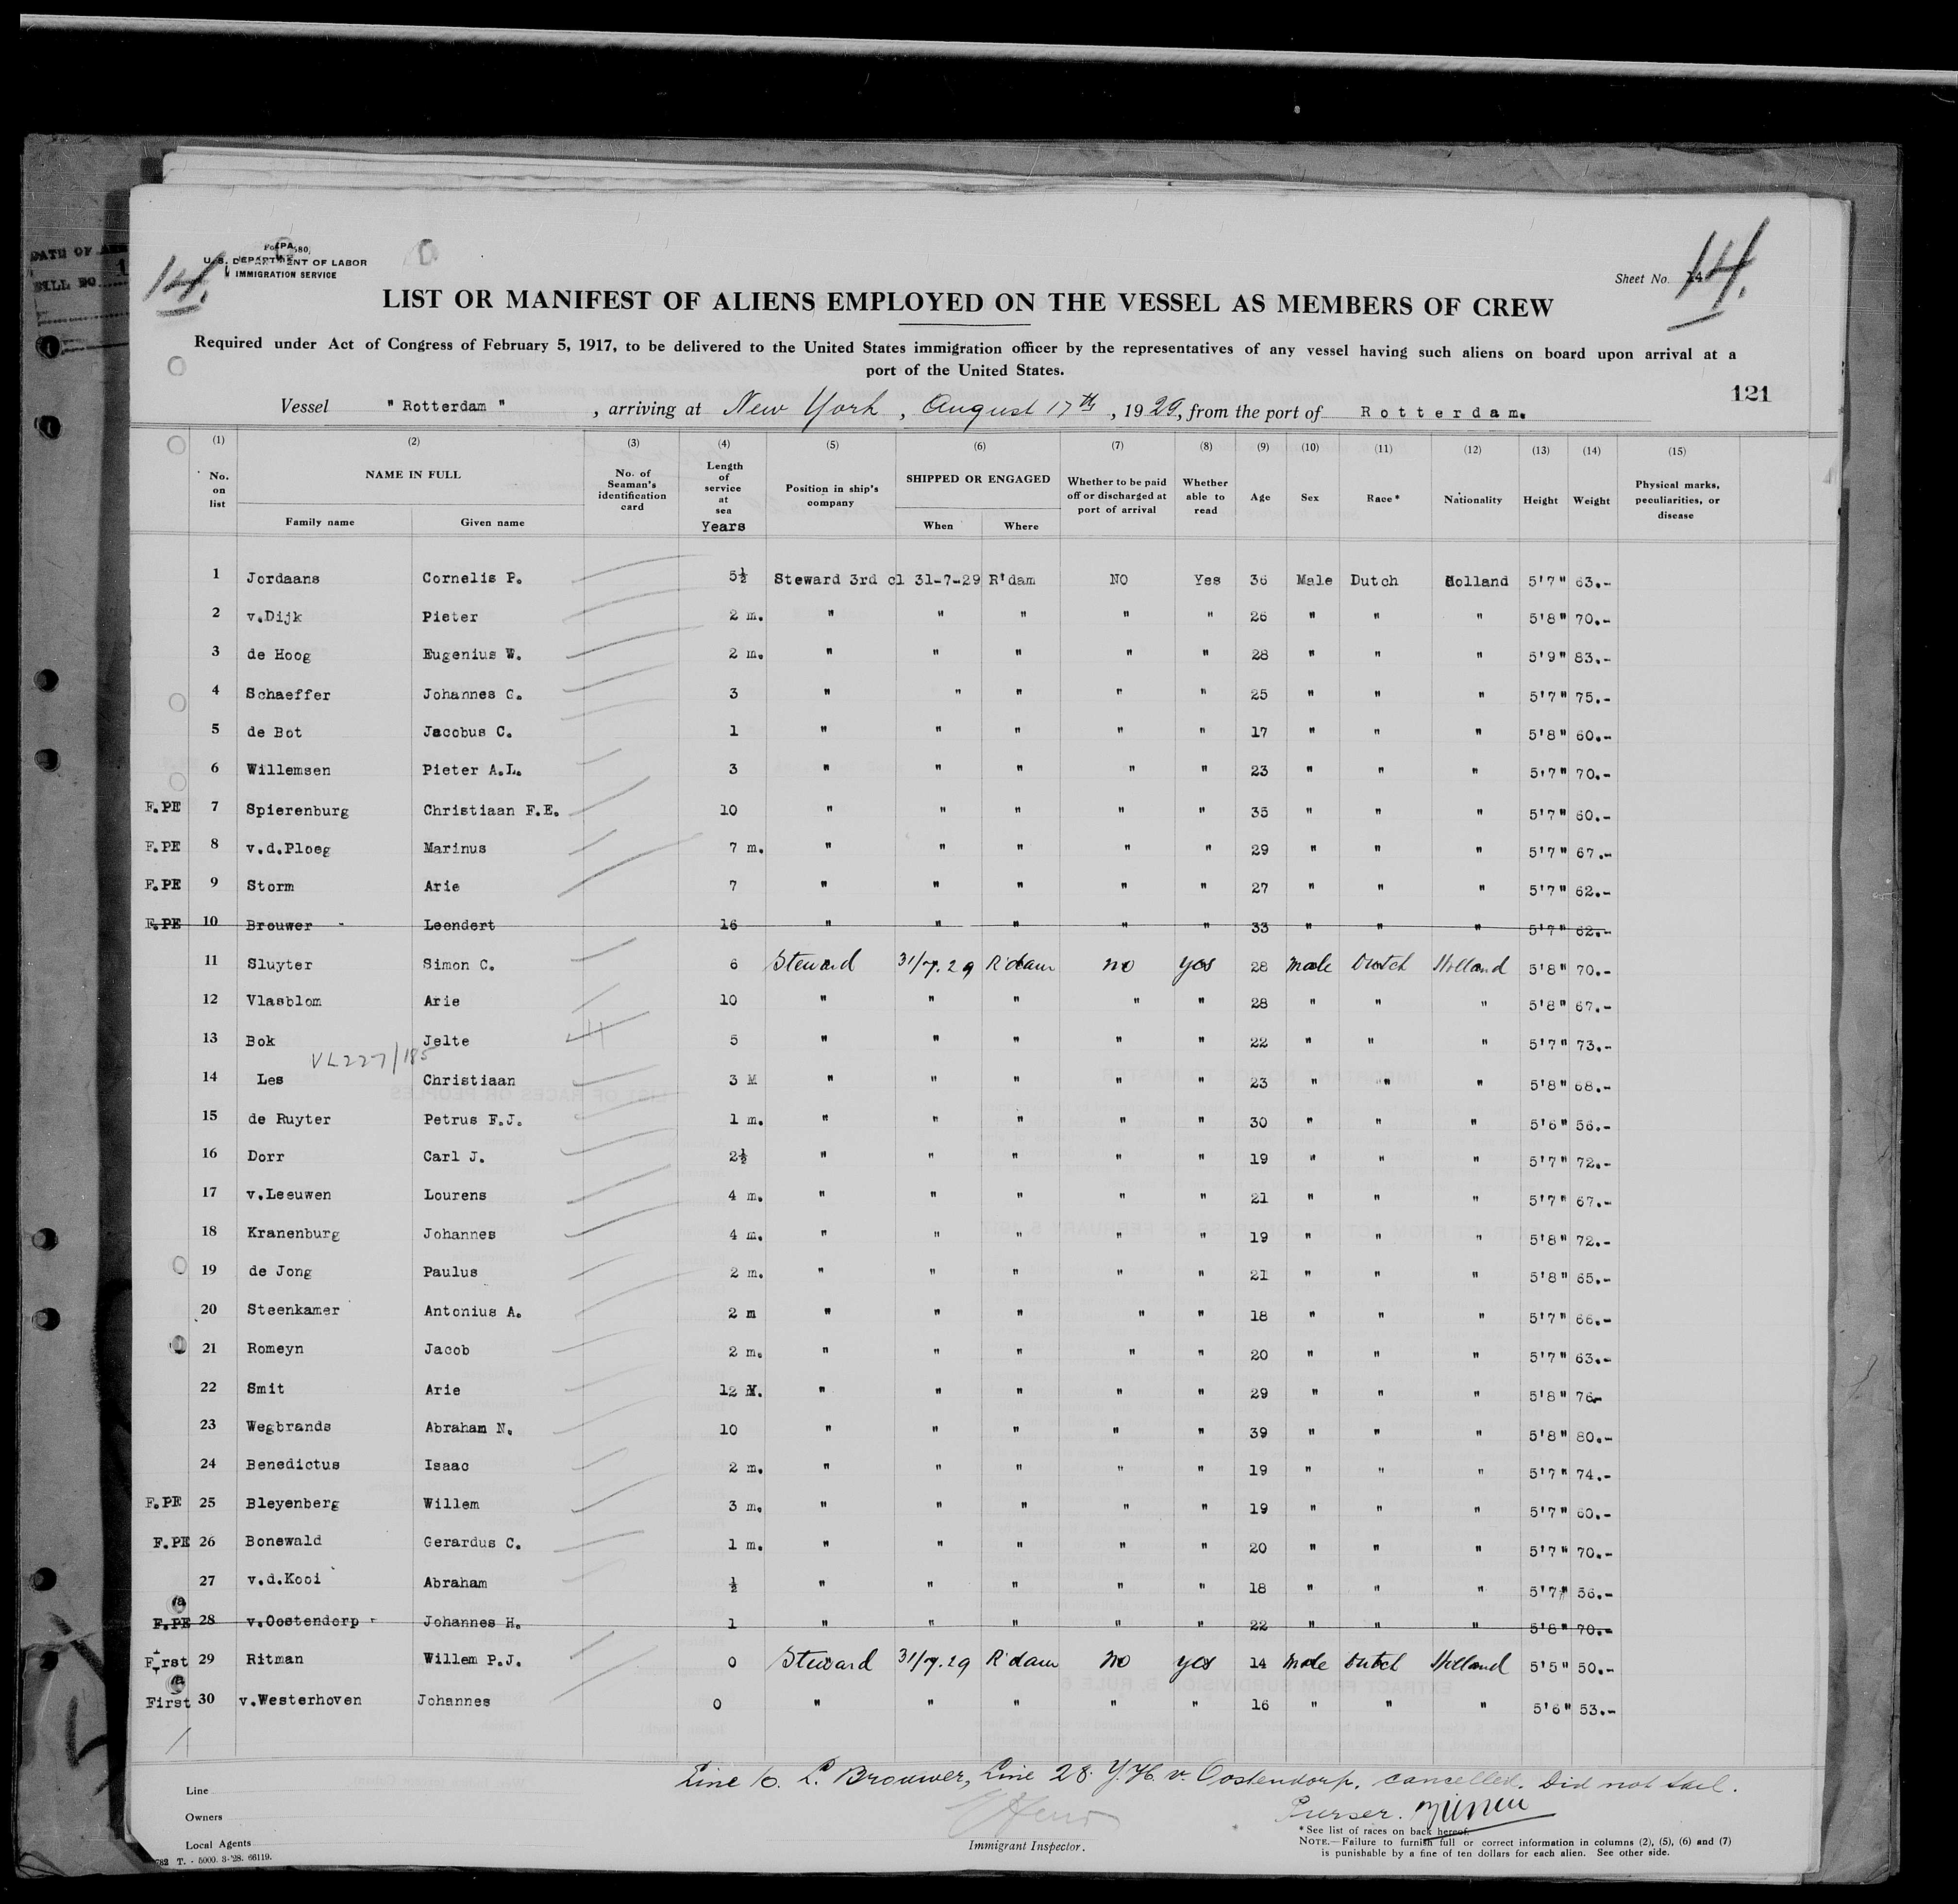 DATE OF
BILL NO.
14.
U.S. DEPARTMENT OF LABOR
IMMIGRATION SERVICE
Sheet No. 14
14.
LIST OR MANIFEST OF ALIENS EMPLOYED ON THE VESSEL AS MEMBERS OF CREW
Required under Act of Congress of February 5, 1917, to be delivered to the United States immigration officer by the representatives of any vessel having such aliens on board upon arrival at a
port of the United States.
121
Vessel "Rotterdam", arriving at New York, August 17th, 1929, from the port of Rotterdam.
(1) (2) (3) (4) (5) (6) (7) (8) (9) (10) (11) (12) (13) (14) (15)
No. on list NAME IN FULL Family name Given name No. of Seaman's identification card Length of service at sea Years Position in ship's company SHIPPED OR ENGAGED When Where Whether to be paid off or discharged at port of arrival Whether able to read Age Sex Race* Nationality Height Weight Physical marks, peculiarities, or disease
1 Jordaans Cornelis P. 5½ Steward 3rd cl 31-7-29 R'dam NO Yes 36 Male Dutch Holland 5'7" 63.-
2 v.Dijk Pieter 2 m. " " " " " 26 " " " 5'8" 70.-
3 de Hoog Eugenius W. 2 m. " " " " " 28 " " " 5'9" 83.-
4 Schaeffer Johannes G. 3 " " " " " 25 " " " 5'7" 75.-
5 de Bot Jacobus C. 1 " " " " " 17 " " " 5'8" 60.-
6 Willemsen Pieter A.L. 3 " " " " " 23 " " " 5'7" 70.-
F.PE 7 Spierenburg Christiaan F.E. 10 " " " " " 35 " " " 5'7" 60.-
F.PE 8 v.d.Ploeg Marinus 7 m. " " " " " 29 " " " 5'7" 67.-
F.PE 9 Storm Arie 7 " " " " " 27 " " " 5'7" 62.-
F.PE 10 Brouwer Leendert 16 " " " " " 33 " " " 5'7" 62.-
11 Sluyter Simon C. 6 Steward 31/7.29 R'dam no yes 28 male Dutch Holland 5'8" 70.-
12 Vlasblom Arie 10 " " " " " 28 " " " 5'8" 67.-
13 Bok Jelte 5 " " " " " 22 " " " 5'7" 73.-
VL227/185
14 Les Christiaan 3 M " " " " " 23 " " " 5'8" 68.-
15 de Ruyter Petrus F.J. 1 m. " " " " " 30 " " " 5'6" 56.-
16 Dorr Carl J. 2½ " " " " " 19 " " " 5'7" 72.-
17 v.Leeuwen Lourens 4 m. " " " " " 21 " " " 5'7" 67.-
18 Kranenburg Johannes 4 m. " " " " " 19 " " " 5'8" 72.-
19 de Jong Paulus 2 m. " " " " " 21 " " " 5'8" 65.-
20 Steenkamer Antonius A. 2 m " " " " " 18 " " " 5'7" 66.-
21 Romeyn Jacob 2 m. " " " " " 20 " " " 5'7" 63.-
22 Smit Arie 12 M. " " " " " 29 " " " 5'8" 76-
23 Wegbrands Abraham N. 10 " " " " " 39 " " " 5'8" 80.-
24 Benedictus Isaac 2 m. " " " " " 19 " " " 5'7" 74.-
F.PE 25 Bleyenberg Willem 3 m. " " " " " 19 " " " 5'7" 60.-
F.PE 26 Bonewald Gerardus C. 1 m. " " " " " 20 " " " 5'7" 70.-
27 v.d.Kooi Abraham ½ " " " " " 18 " " " 5'7" 56.-
F.PE 28 v.Oostendorp Johannes H. 1 " " " " " 22 " " " 5'8" 70.-
First 29 Ritman Willem P.J. 0 Steward 31/7.29 R'dam no yes 14 male Dutch Holland 5'5" 50.-
First 30 v.Westerhoven Johannes 0 " " " " " 16 " " " 5'6" 53.-
Line 10. L. Brouwer, Line 28. J.H. v. Oostendorp, cancelled. Did not sail.
Line
Owners
Local Agents
Immigrant Inspector.
Purser.
* See list of races on back hereof.
NOTE.—Failure to furnish full or correct information in columns (2), (5), (6) and (7)
is punishable by a fine of ten dollars for each alien. See other side.
782 T. - 5000. 3-'28. 66119.